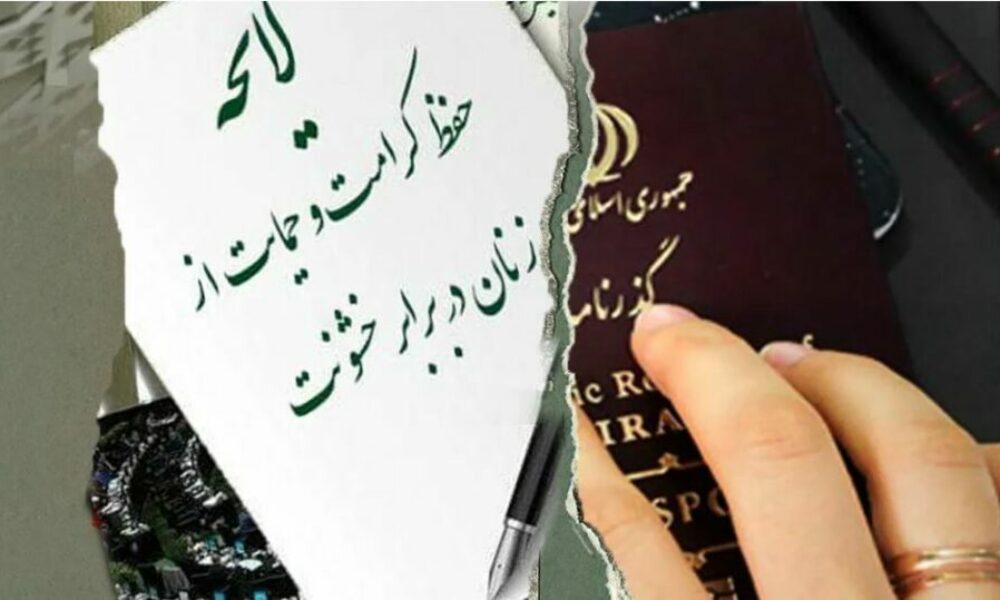 لایحه
حفظ کرامت و حمایت از
زنان در برابر خشونت
جمهوری اسلامی
گذرنامه
ic R
IRA
SPO